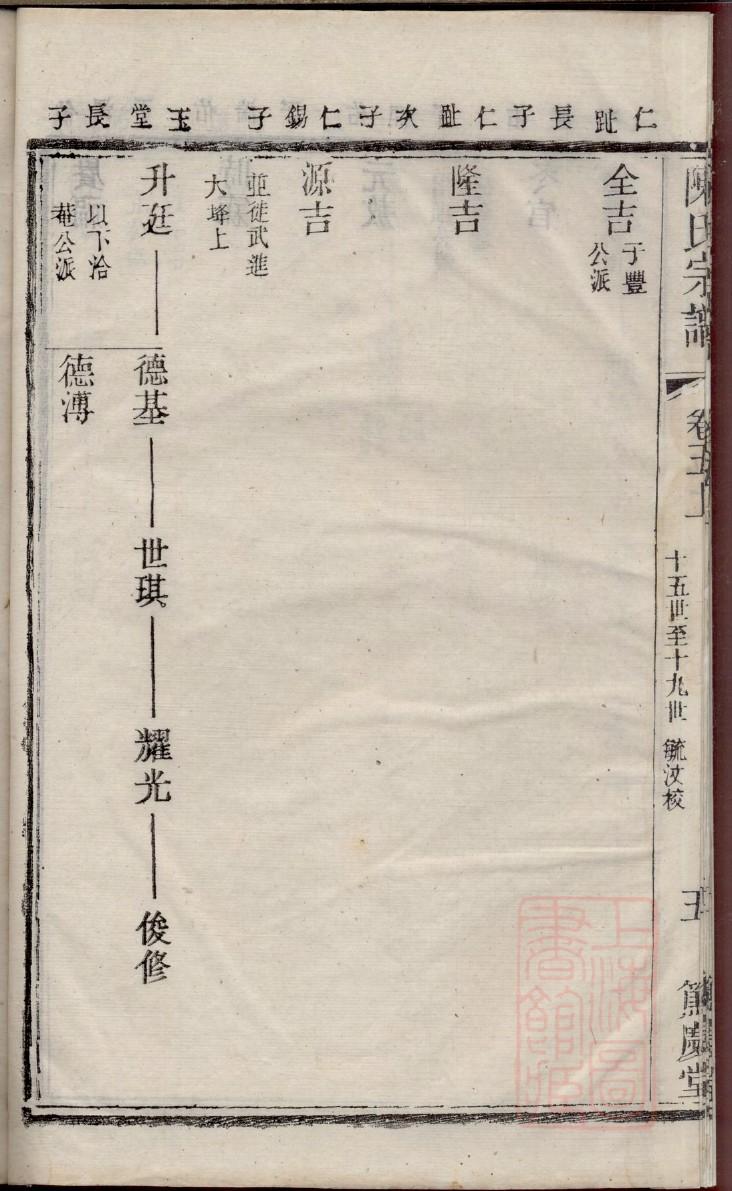 陳氏宗譜
卷五上
十五世至十九世 毓汶校
五
篤慶堂
仁趾長子
全吉
于豐
公派
仁趾次子
隆吉
仁錫子
源吉
並徙武進
大埄上
玉堂長子
升廷
以下洽
菴公派
德基
世琪
耀光
俊修
德溥
上海圖書館藏